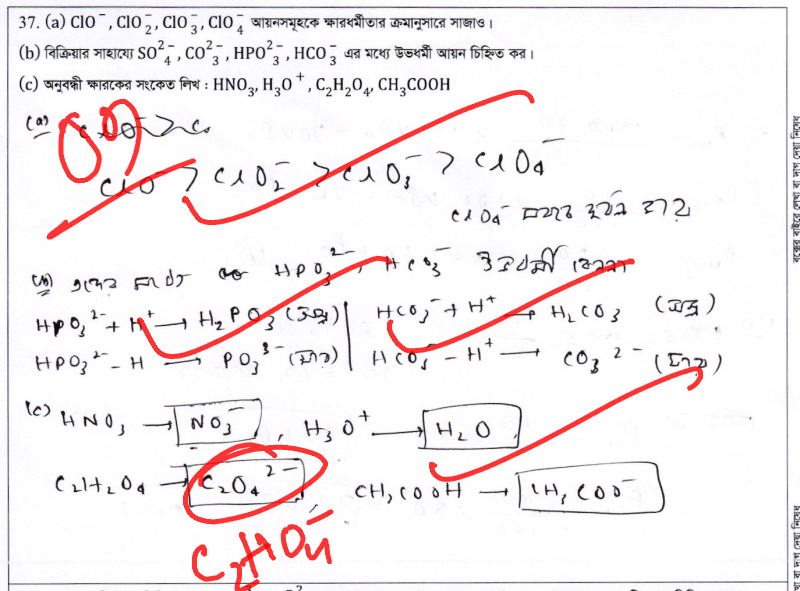 37. (a) ClO⁻, ClO₂⁻, ClO₃⁻, ClO₄⁻ আয়নসমূহকে ক্ষারধর্মীতার ক্রমানুসারে সাজাও।
(b) বিক্রিয়ার সাহায্যে SO₄²⁻, CO₃²⁻, HPO₃²⁻, HCO₃⁻ এর মধ্যে উভধর্মী আয়ন চিহ্নিত কর।
(c) অনুবন্ধী ক্ষারকের সংকেত লিখ : HNO₃, H₃O⁺, C₂H₂O₄, CH₃COOH
(a)
ClO⁻ > ClO₂⁻ > ClO₃⁻ > ClO₄⁻
ClO₄⁻ সবচেয়ে দুর্বল ক্ষার
(b) এদের মধ্যে HPO₃²⁻, HCO₃⁻ উভধর্মী কেননা
HPO₃²⁻ + H⁺ → H₂PO₃ (অম্ল) | HCO₃⁻ + H⁺ → H₂CO₃ (অম্ল)
HPO₃²⁻ - H → PO₃³⁻ (ক্ষার) | HCO₃⁻ - H⁺ → CO₃²⁻ (ক্ষার)
(c) HNO₃ → NO₃⁻, H₃O⁺ → H₂O
C₂H₂O₄ → C₂O₄²⁻, CH₃COOH → CH₃COO⁻
C₂HO₄⁻
বক্সের বাইরে লেখা বা দাগ দেয়া নিষেধ